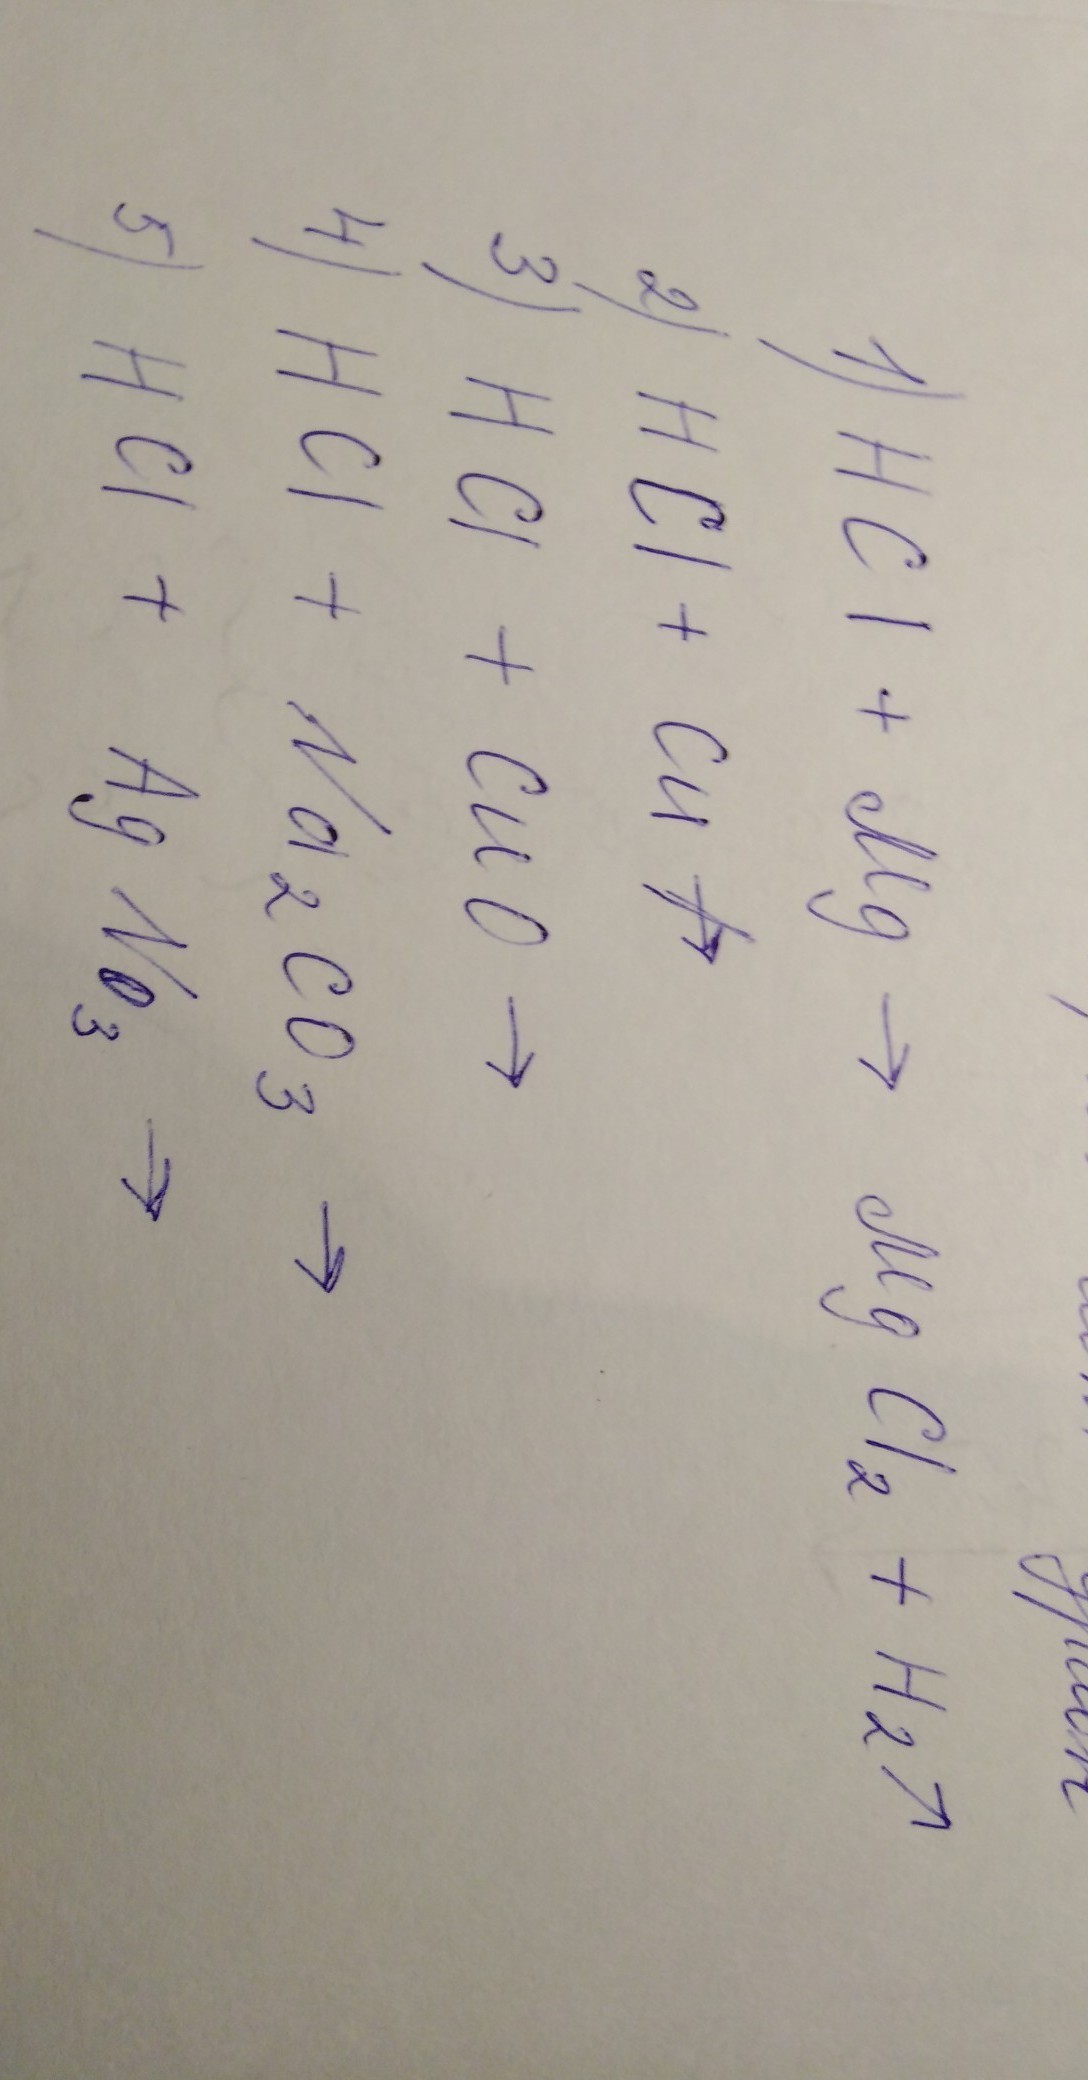 1) HCl + Mg → MgCl₂ + H₂↑
2) HCl + Cu ↛
3) HCl + CuO →
4) HCl + Na₂CO₃ →
5) HCl + AgNO₃ →